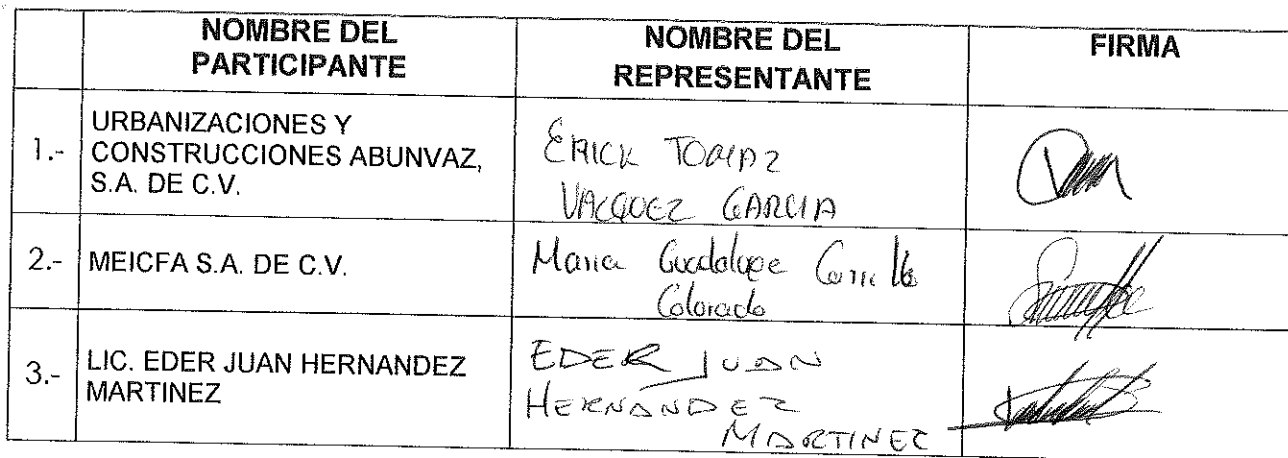 NOMBRE DEL
PARTICIPANTE
NOMBRE DEL
REPRESENTANTE
FIRMA
1.-
URBANIZACIONES Y
CONSTRUCCIONES ABUNVAZ,
S.A. DE C.V.
ERICK
VAZQUEZ GARCIA
2.-
MEICFA S.A. DE C.V.
Maria Guadalupe
Colorado
3.-
LIC. EDER JUAN HERNANDEZ
MARTINEZ
EDER JUAN
HERNANDEZ
MARTINEZ